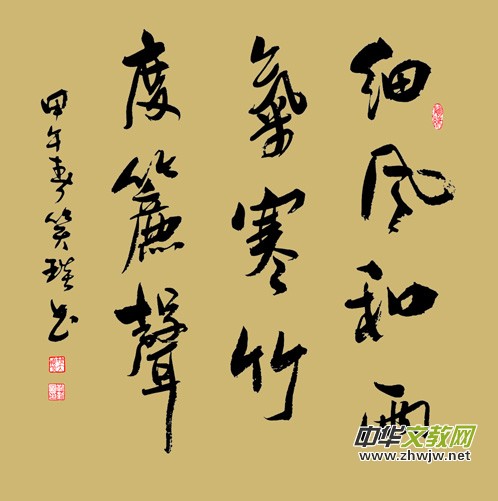 細風和雨
氣寒竹
度簾聲
甲午春笑琰书
中华文教网
www.zhwjw.net